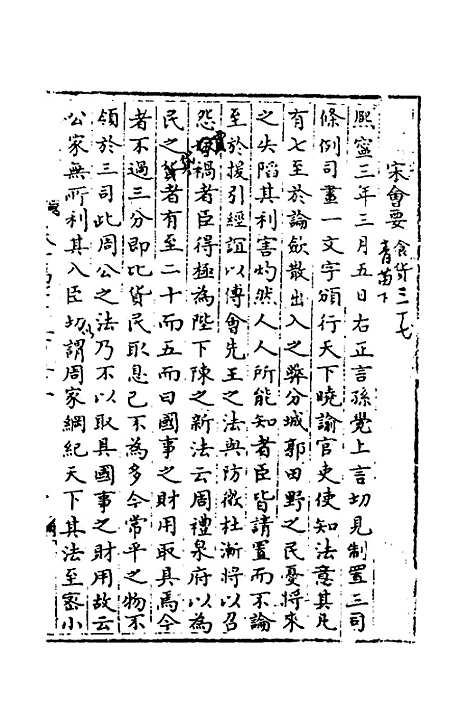 宋會要 食貨三七
青苗下
熙寧三年三月五日右正言孫覺上言切見制置三司
條例司畫一文字頒行天下曉諭官吏使知法意其凡
有七至於論斂散出入之弊分城郭田野之民憂將來
之失陷其利害灼然人人所能知者臣皆請置而不論
至於援引經誼以傅會先王之法與防微杜漸將以召
怨賈禍者臣得極為陛下陳之新法云周禮泉府以為
民之貸者有至二十而五而曰國事之財用取具焉今
者不過三分即比貸民取息已不為多今常平之物不
領於三司此周公之法乃不以取具國事之財用故云
公家無所利其入臣切以謂周家綱紀天下其法至密小